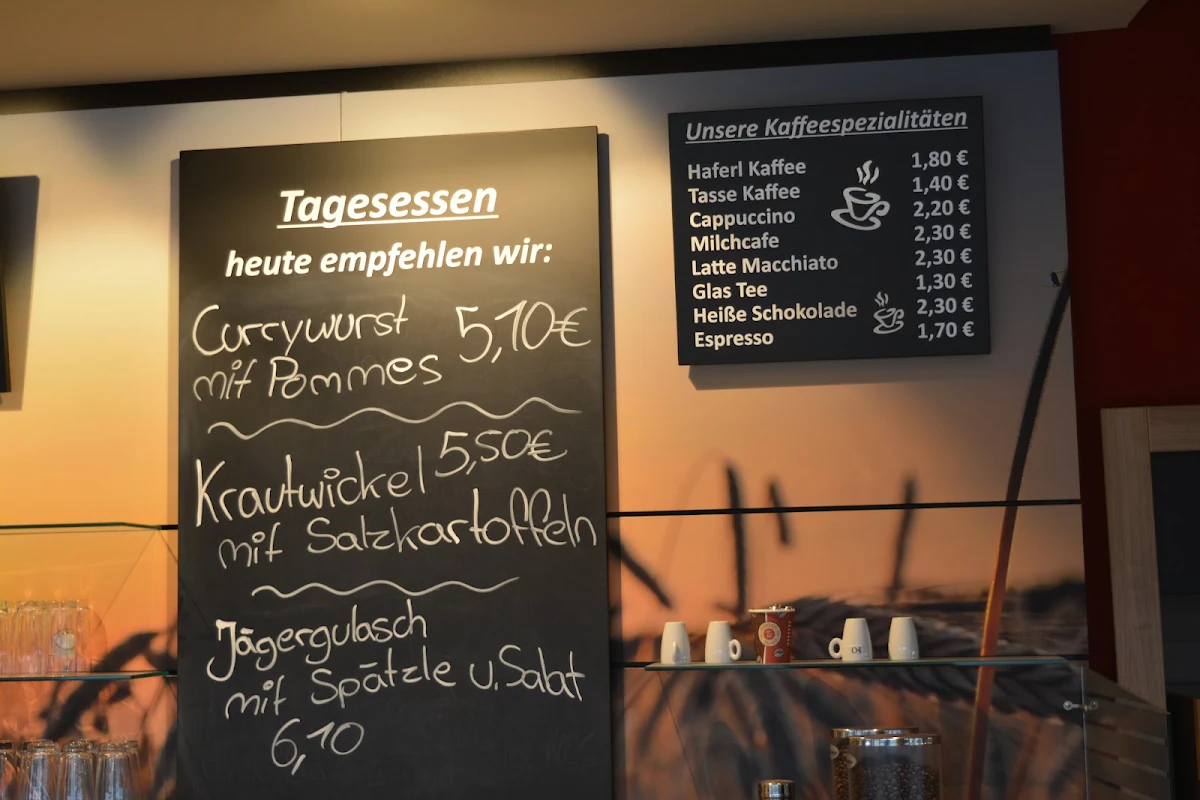 Tagesessen
heute empfehlen wir:
Currywurst 5,10€
mit Pommes
Krautwickel 5,50€
mit Salzkartoffeln
Jägergulasch
mit Spätzle u. Salat
6,10
Unsere Kaffeespezialitäten
Haferl Kaffee 1,80 €
Tasse Kaffee 1,40 €
Cappuccino 2,20 €
Milchcafe 2,30 €
Latte Macchiato 2,30 €
Glas Tee 1,30 €
Heiße Schokolade 2,30 €
Espresso 1,70 €